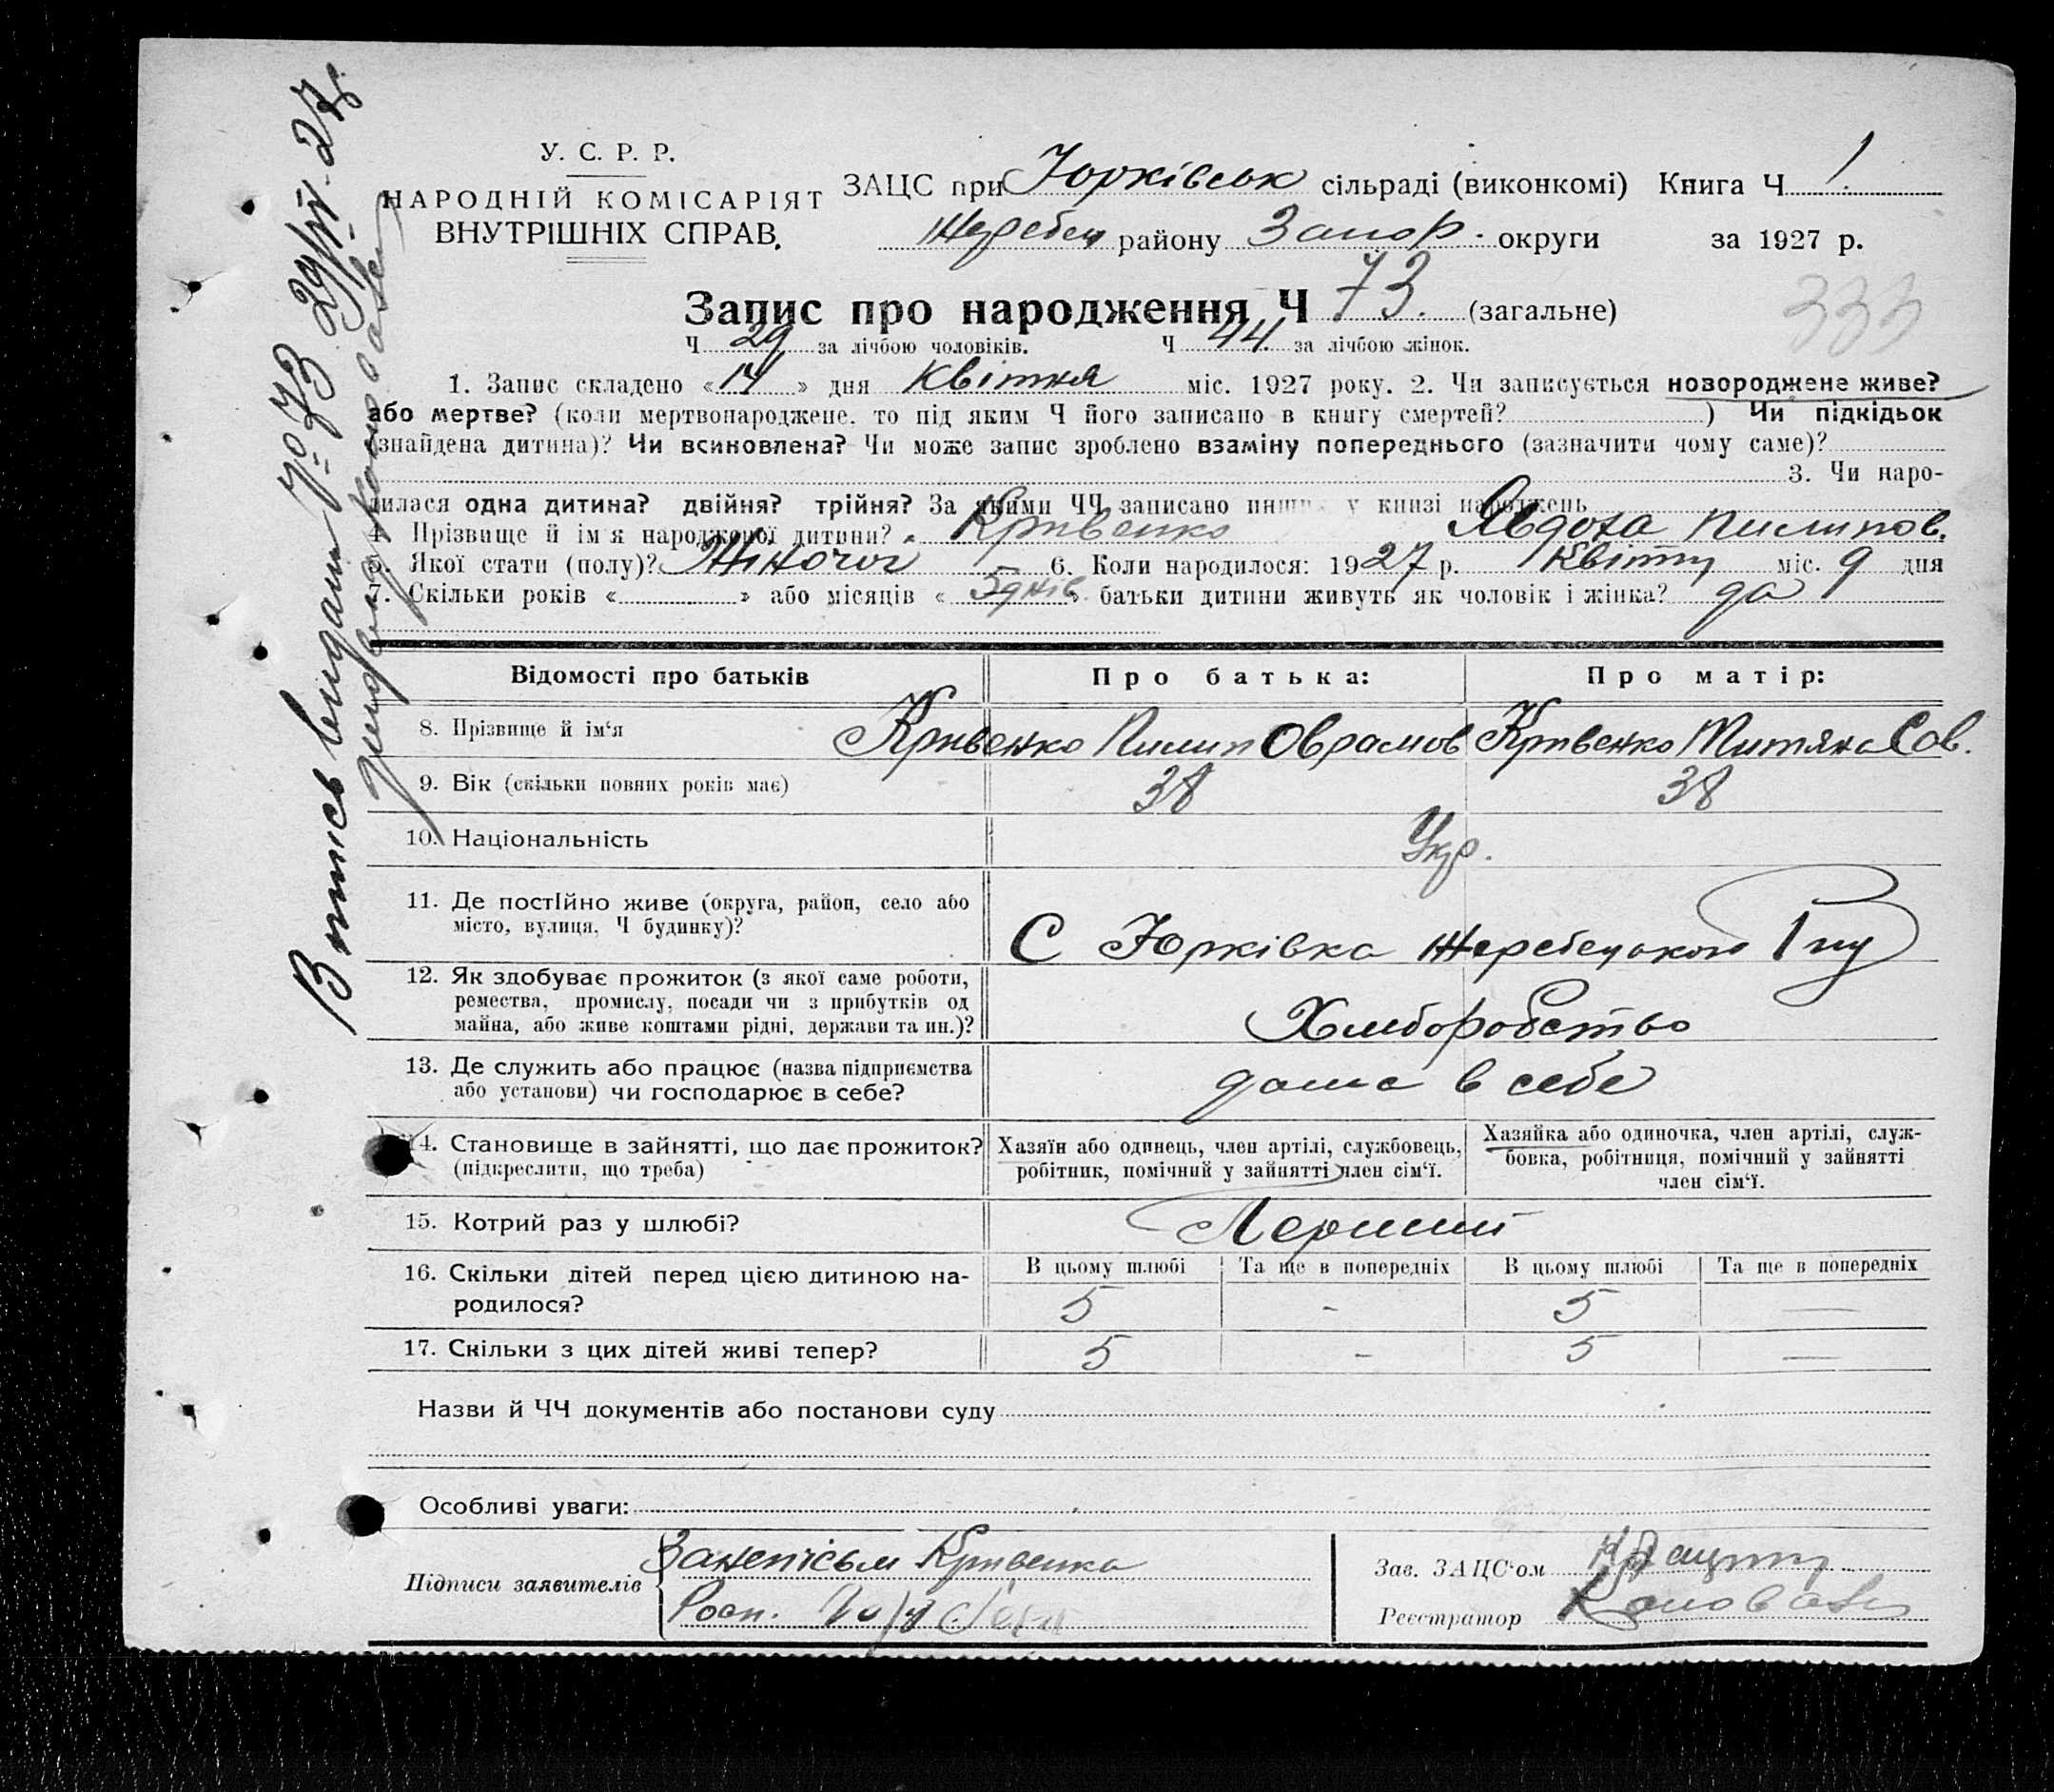 У. С. Р. Р.
НАРОДНІЙ КОМІСАРІЯТ
ВНУТРІШНІХ СПРАВ.
ЗАЦС при Юрківськ сільраді (виконкомі) Книга Ч 1
Жеребец району Запор. округи за 1927 р.
Запис про народження Ч 73. (загальне)
333
Ч 29 за лічбою чоловіків. Ч 44 за лічбою жінок.
1. Запис складено « 14 » дня Квітня міс. 1927 року. 2. Чи записується новороджене живе?
або мертве? (коли мертвонароджене, то під яким Ч його записано в книгу смертей? ) Чи підкідьок
(знайдена дитина)? Чи всиновлена? Чи може запис зроблено взаміну попереднього (зазначити чому саме)?
3. Чи наро-
дилася одна дитина? двійня? трійня? За якими ЧЧ записано инших у книзі народжень
4. Прізвище й ім'я народженої дитини? Кривенко Явдоха Пилипов.
5. Якої стати (полу)? Жіночої 6. Коли народилося: 1927 р. Квітн міс. 9 дня
7. Скільки років « » або місяців « 5 днів » батьки дитини живуть як чоловік і жінка? да
Відомості про батьків Про батька: Про матір:
8. Прізвище й ім'я Кривенко Пилип Оврамов Кривенко Митяна Сав.
9. Вік (скільки повних років має) 38 38
10. Національність Укр.
11. Де постійно живе (округа, район, село або
місто, вулиця, Ч будинку)? С Юрківка Жеребецького Р-ну
12. Як здобуває прожиток (з якої саме роботи,
ремества, промислу, посади чи з прибутків од
майна, або живе коштами рідні, держави та ин.)? Хліборобство
13. Де служить або працює (назва підприємства
або установи) чи господарює в себе? дома в себе
14. Становище в зайнятті, що дає прожиток?
(підкреслити, що треба)
Хазяїн або одинець, член артілі, службовець,
робітник, помічний у зайнятті член сім'ї.
Хазяйка або одиночка, член артілі, служ-
бовка, робітниця, помічний у зайнятті
член сім'ї.
15. Котрий раз у шлюбі? Перший
16. Скільки дітей перед цією дитиною на-
родилося?
В цьому шлюбі Та ще в попередніх В цьому шлюбі Та ще в попередніх
5 - 5 —
17. Скільки з цих дітей живі тепер? 5 - 5 —
Назви й ЧЧ документів або постанови суду
Особливі уваги:
Підписи заявителів
Занепісьм Кривенка
Росп.
Зав. ЗАЦС'ом
Реєстратор
Випись видани 73 29/IV-27р.